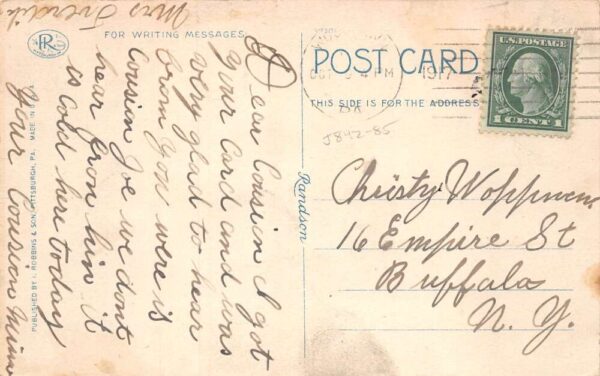 Mrs Overdik
PR
FOR WRITING MESSAGES
Dear Cousien I got
your card and was
very glad to hear
from you were is
Cousien Joe we dont
hear from him it
is cold here today
your Cousien Minn
PUBLISHED BY I. ROBBINS & SON, PITTSBURGH, PA. MADE IN U.S.A.
Randson
POST CARD
THIS SIDE IS FOR THE ADDRESS
4 PM
1917
PA
J842-85
U.S. POSTAGE
1 CENT 1
Christy Woppman
16 Empire St
Buffalo
N. Y.